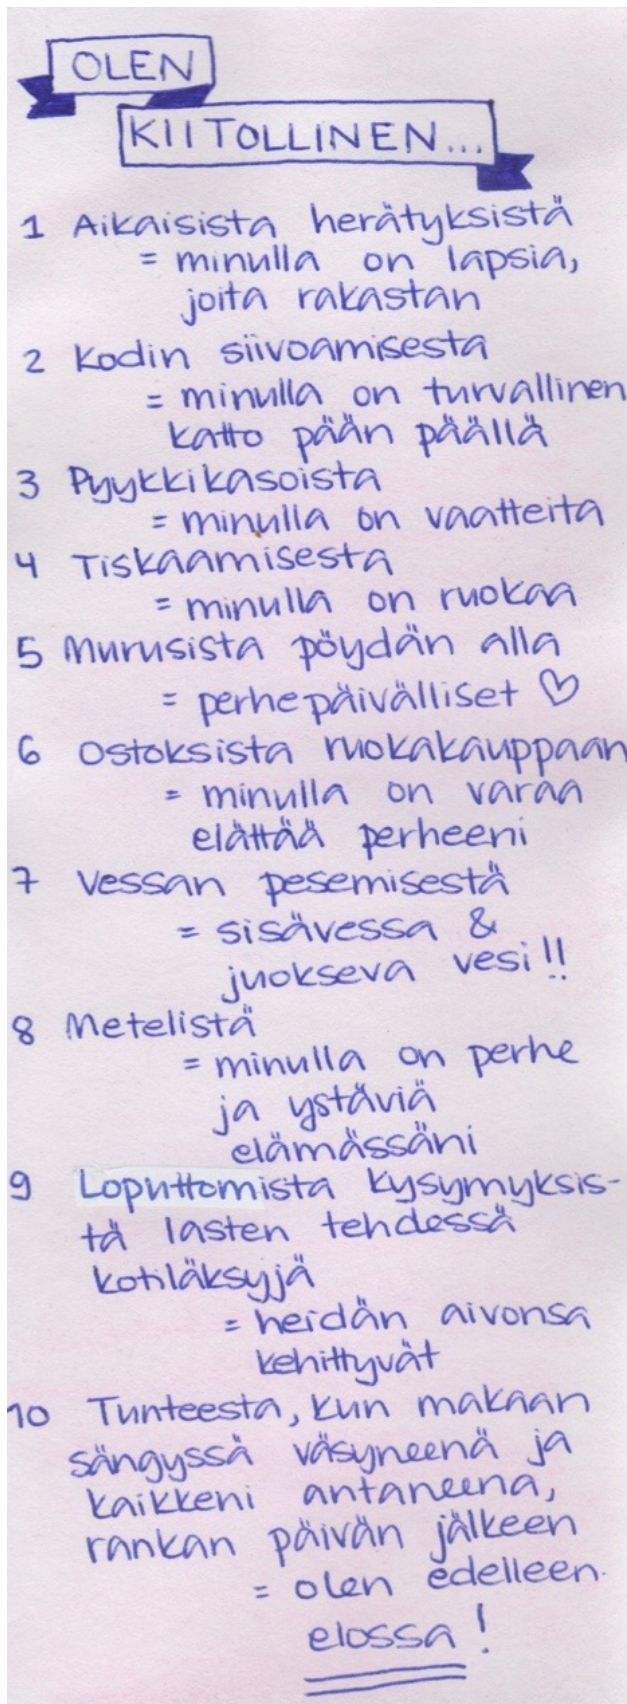 OLEN
KIITOLLINEN...
1 Aikaisista herätyksistä
= minulla on lapsia,
joita rakastan
2 Kodin siivoamisesta
= minulla on turvallinen
katto pään päällä
3 Pyykkikasoista
= minulla on vaatteita
4 Tiskaamisesta
= minulla on ruokaa
5 Murusista pöydän alla
= perhepäivälliset ♡
6 Ostoksista ruokakauppaan
= minulla on varaa
elättää perheeni
7 Vessan pesemisestä
= sisävessa &
juokseva vesi!!
8 Metelistä
= minulla on perhe
ja ystäviä
elämässäni
9 Loputtomista kysymyksis-
tä lasten tehdessä
kotiläksyjä
= heidän aivonsa
kehittyvät
10 Tunteesta, kun makaan
sängyssä väsyneenä ja
kaikkeni antaneena,
rankan päivän jälkeen
= olen edelleen
elossa!